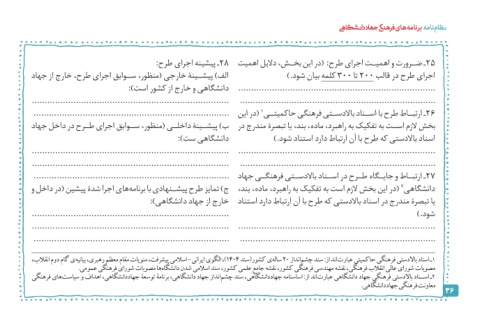 نظام‌نامه برنامه‌های فرهنگی جهاددانشگاهی
۲۵ـ ضرورت و اهمیت اجرای طرح: (در این بخش، دلایل اهمیت
اجرای طرح در قالب ۲۰۰ تا ۳۰۰ کلمه بیان شود.)
۲۶ـ ارتباط طرح با اسناد بالادستی فرهنگی حاکمیتی۱ (در این
بخش لازم است به تفکیک به راهبرد، ماده، بند، یا تبصرهٔ مندرج در
اسناد بالادستی که طرح با آن ارتباط دارد استناد شود.)
۲۷ـ ارتباط و جایگاه طرح در اسناد بالادستی فرهنگی جهاد
دانشگاهی۲ (در این بخش لازم است به تفکیک به راهبرد، ماده، بند،
یا تبصرهٔ مندرج در اسناد بالادستی که طرح با آن ارتباط دارد استناد
شود.)
۲۸ـ پیشینه اجرای طرح:
الف) پیشینهٔ خارجی (منظور، سوابق اجرای طرح، خارج از جهاد
دانشگاهی و خارج از کشور است):
ب) پیشینهٔ داخلی (منظور، سوابق اجرای طرح در داخل جهاد
دانشگاهی ست):
ج) تمایز طرح پیشنهادی با برنامه‌های اجرا شدهٔ پیشین (در داخل و
خارج از جهاد دانشگاهی):
۱ـ اسناد بالادستی فرهنگی حاکمیتی عبارت‌اند از: سند چشم‌انداز ۲۰ ساله‌ی کشور (سند ۱۴۰۴)، الگوی ایرانی – اسلامی پیشرفت، منویات مقام معظم رهبری، بیانیه‌ی گام دوم انقلاب،
مصوبات شورای عالی انقلاب فرهنگی، نقشه مهندسی فرهنگی کشور، نقشه جامع علمی کشور، سند اسلامی شدن دانشگاه‌ها مصوبات شورای فرهنگی عمومی.
۲ـ اسناد بالادستی فرهنگی جهاد دانشگاهی عبارت‌اند از: اساسنامه جهاددانشگاهی، سند چشم‌انداز جهاد دانشگاهی، برنامهٔ توسعهٔ جهاددانشگاهی، اهداف و سیاست‌های فرهنگی
معاونت فرهنگی جهاددانشگاهی.
۳۶